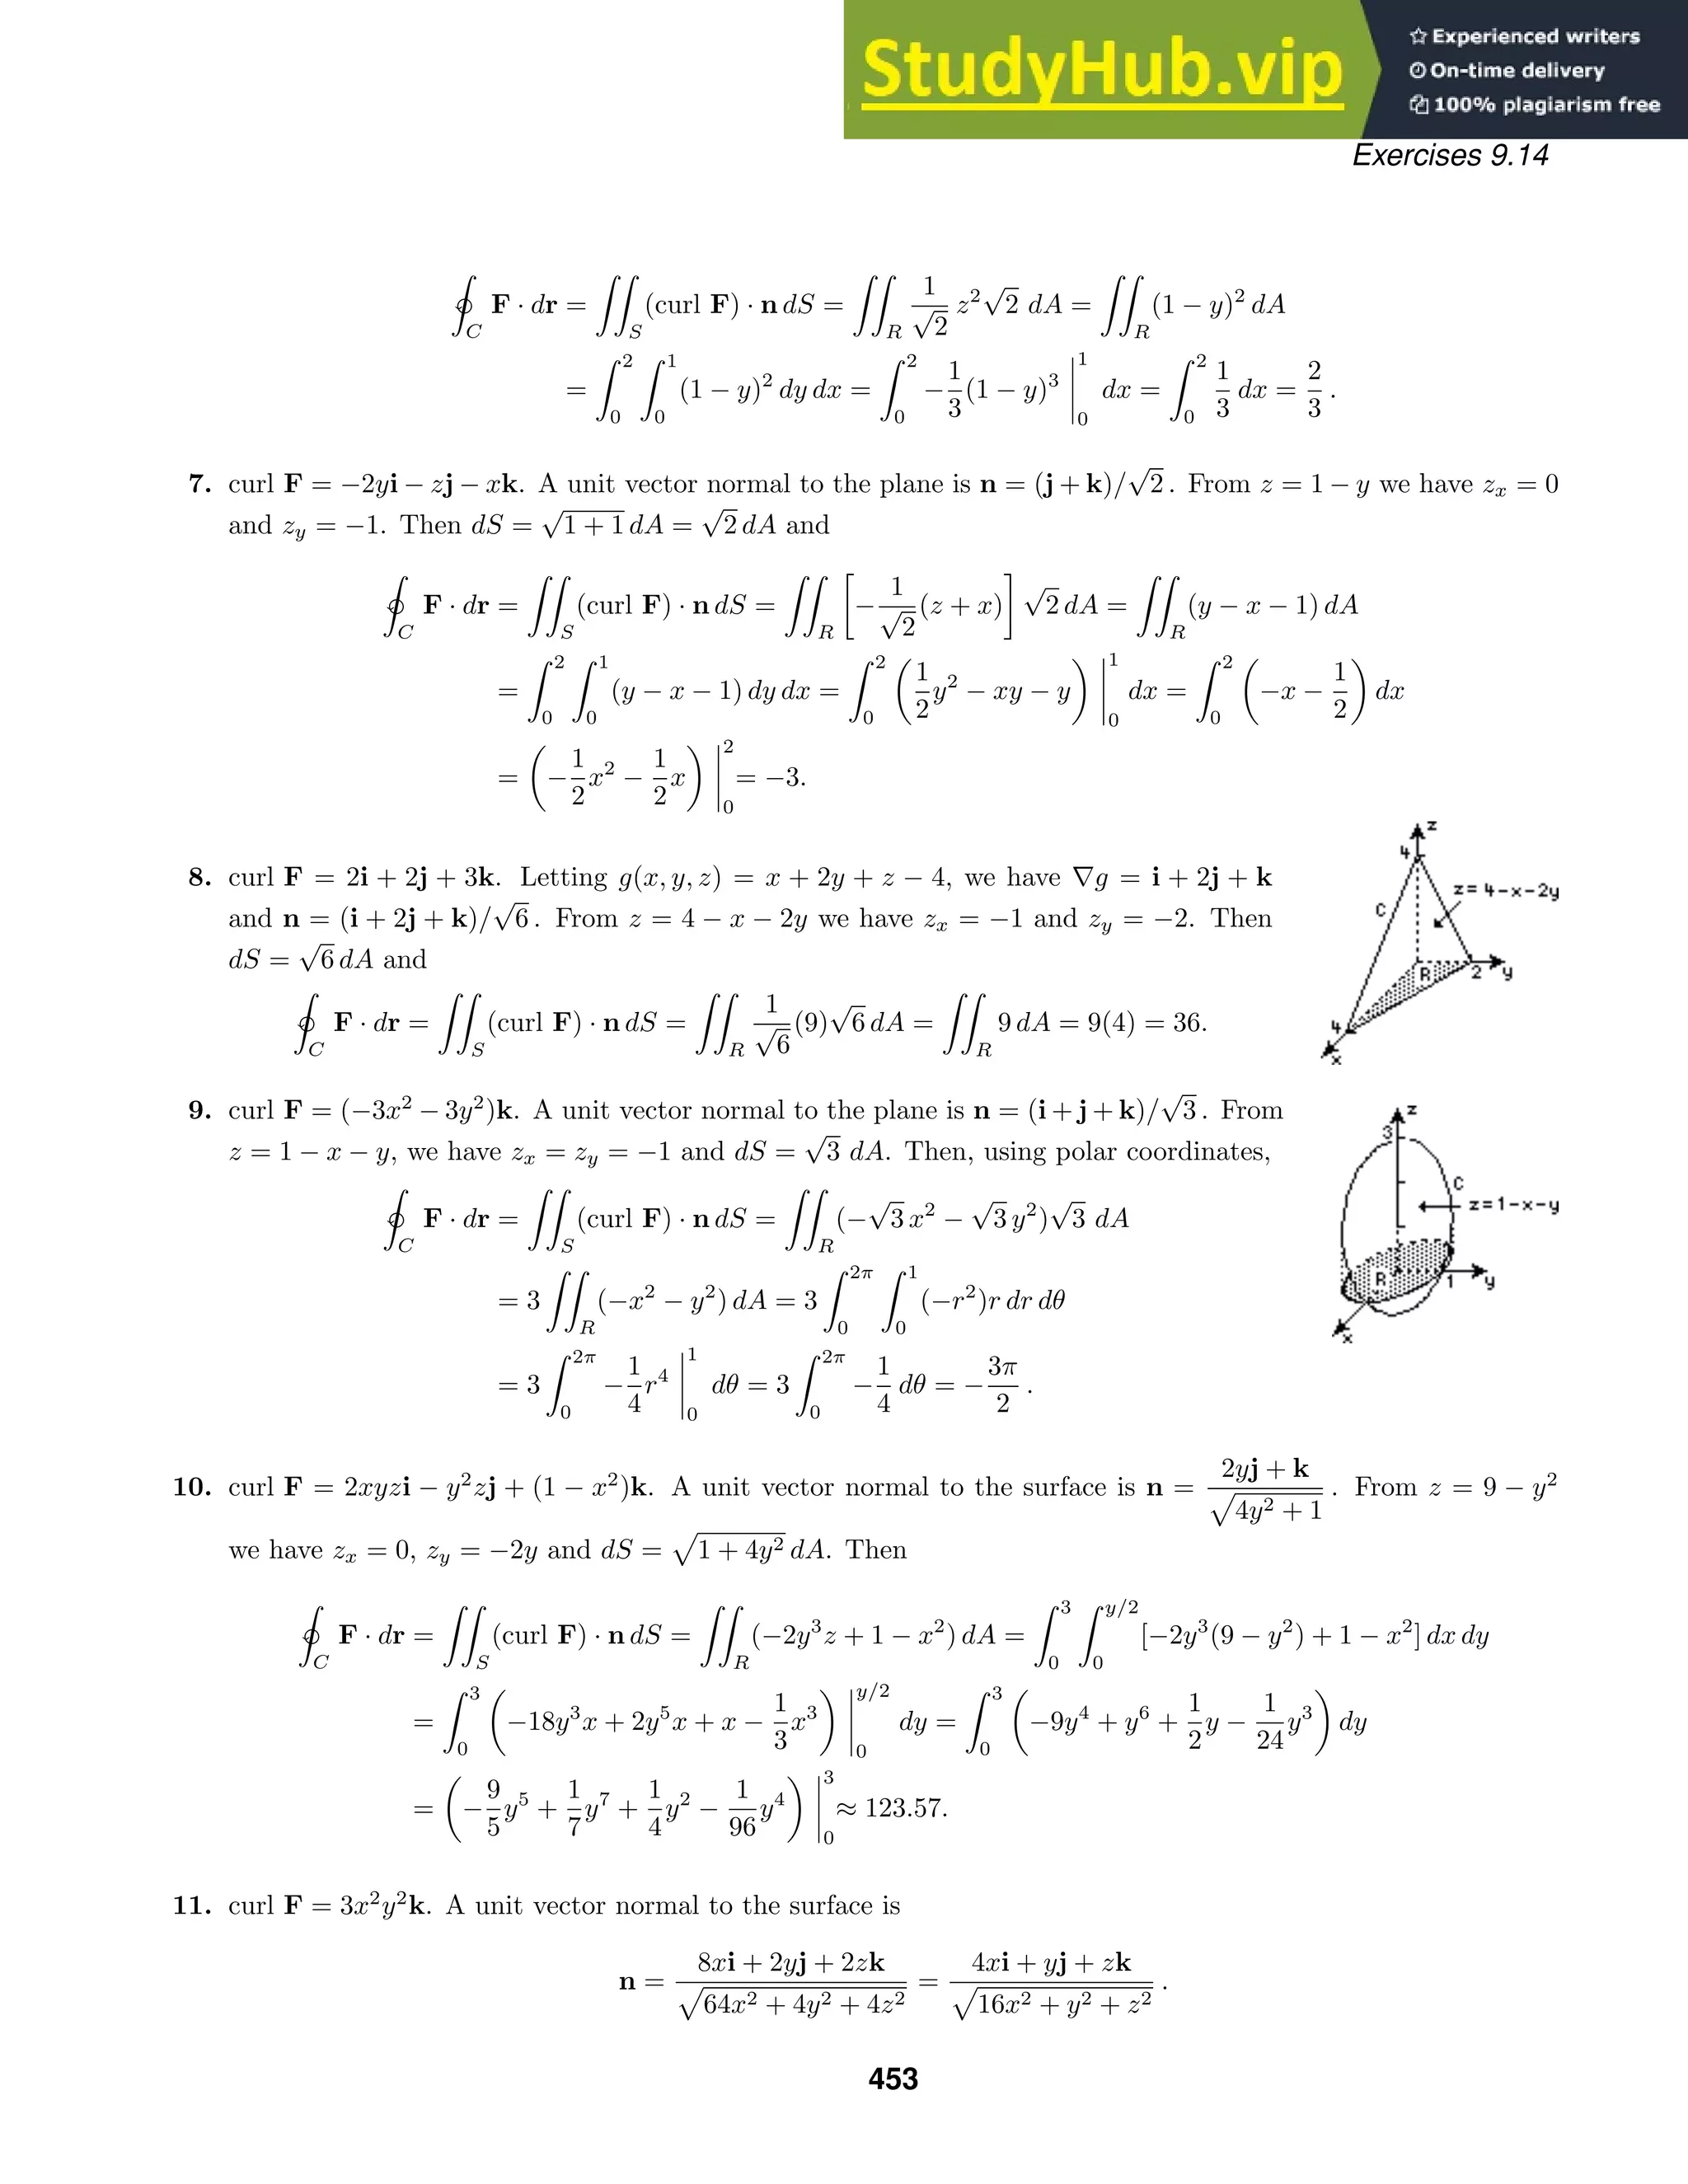 StudyHub.vip
☆ Experienced writers
On-time delivery
100% plagiarism free
Exercises 9.14
∮_C F · dr = ∬_S (curl F) · n dS = ∬_R 1/√2 z²√2 dA = ∬_R (1 − y)² dA
= ∫_0^2 ∫_0^1 (1 − y)² dy dx = ∫_0^2 −1/3(1 − y)³ |_0^1 dx = ∫_0^2 1/3 dx = 2/3 .
7. curl F = −2yi − zj − xk. A unit vector normal to the plane is n = (j + k)/√2 . From z = 1 − y we have z_x = 0
and z_y = −1. Then dS = √(1 + 1) dA = √2 dA and
∮_C F · dr = ∬_S (curl F) · n dS = ∬_R [−1/√2(z + x)] √2 dA = ∬_R (y − x − 1) dA
= ∫_0^2 ∫_0^1 (y − x − 1) dy dx = ∫_0^2 (1/2y² − xy − y) |_0^1 dx = ∫_0^2 (−x − 1/2) dx
= (−1/2x² − 1/2x) |_0^2 = −3.
8. curl F = 2i + 2j + 3k. Letting g(x, y, z) = x + 2y + z − 4, we have ∇g = i + 2j + k
and n = (i + 2j + k)/√6 . From z = 4 − x − 2y we have z_x = −1 and z_y = −2. Then
dS = √6 dA and
∮_C F · dr = ∬_S (curl F) · n dS = ∬_R 1/√6(9)√6 dA = ∬_R 9 dA = 9(4) = 36.
z
4
z=4-x-2y
C
R
2
y
4
x
9. curl F = (−3x² − 3y²)k. A unit vector normal to the plane is n = (i + j + k)/√3 . From
z = 1 − x − y, we have z_x = z_y = −1 and dS = √3 dA. Then, using polar coordinates,
∮_C F · dr = ∬_S (curl F) · n dS = ∬_R (−√3 x² − √3 y²)√3 dA
= 3 ∬_R (−x² − y²) dA = 3 ∫_0^2π ∫_0^1 (−r²)r dr dθ
= 3 ∫_0^2π −1/4r⁴ |_0^1 dθ = 3 ∫_0^2π −1/4 dθ = −3π/2 .
z
3
C
z=1-x-y
R
1
y
x
10. curl F = 2xyzi − y²zj + (1 − x²)k. A unit vector normal to the surface is n = (2yj + k)/√(4y² + 1) . From z = 9 − y²
we have z_x = 0, z_y = −2y and dS = √(1 + 4y²) dA. Then
∮_C F · dr = ∬_S (curl F) · n dS = ∬_R (−2y³z + 1 − x²) dA = ∫_0^3 ∫_0^y/2 [−2y³(9 − y²) + 1 − x²] dx dy
= ∫_0^3 (−18y³x + 2y⁵x + x − 1/3x³) |_0^y/2 dy = ∫_0^3 (−9y⁴ + y⁶ + 1/2y − 1/24y³) dy
= (−9/5y⁵ + 1/7y⁷ + 1/4y² − 1/96y⁴) |_0^3 ≈ 123.57.
11. curl F = 3x²y²k. A unit vector normal to the surface is
n = (8xi + 2yj + 2zk)/√(64x² + 4y² + 4z²) = (4xi + yj + zk)/√(16x² + y² + z²) .
453